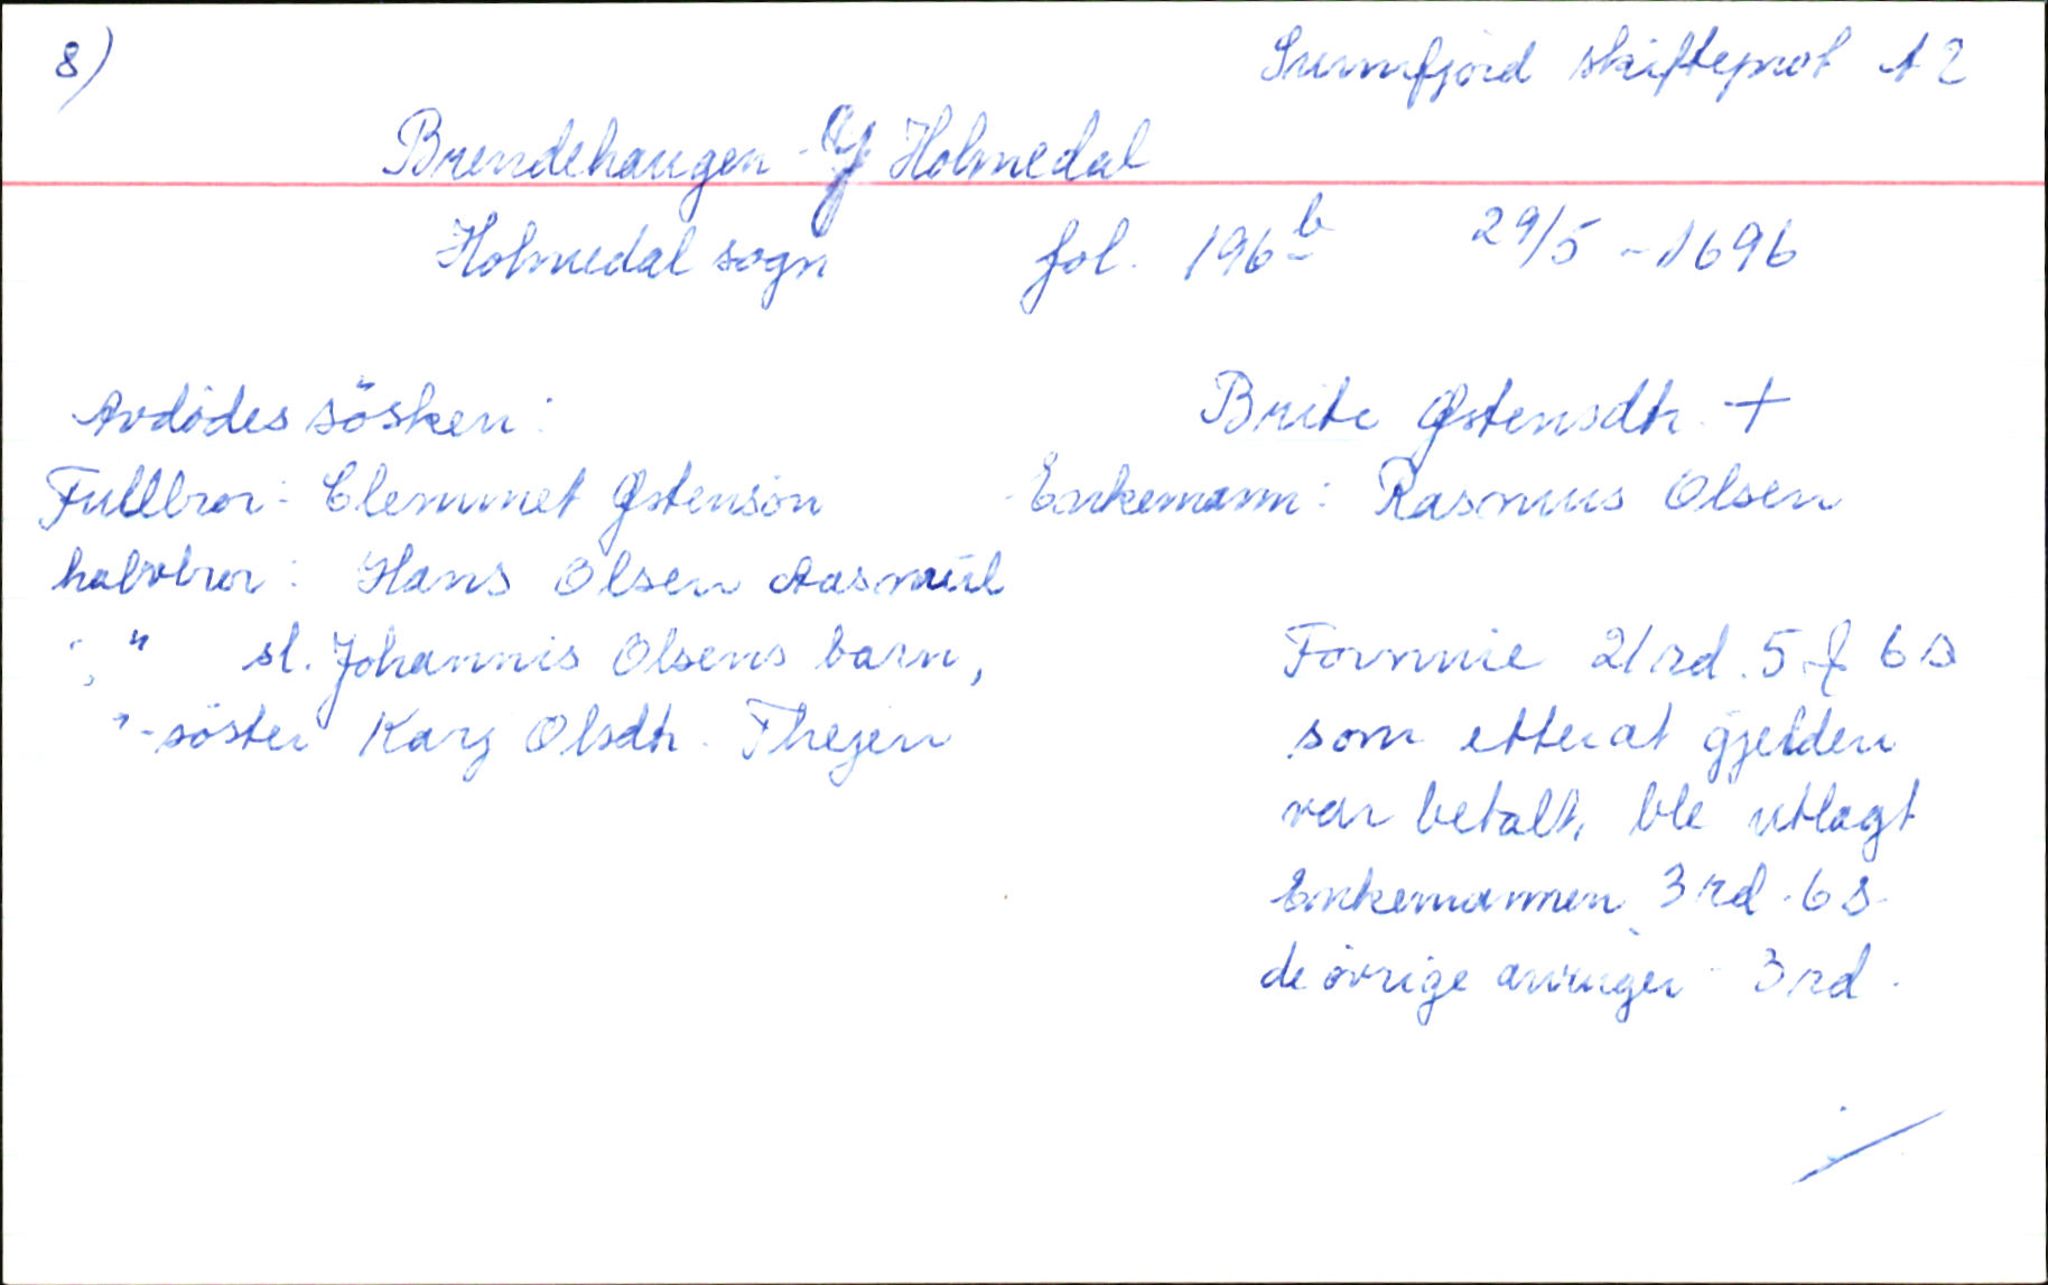 8)
Sunnfjord skifteprot A 2
Brendehaugen - Y Holmedal
Holmedal sogn fol. 196 b 29/5 - 1696
Avdødes søsken:
Fullbror: Clemmet Østensøn
halvbror: Hans Olsen Aasmul
" sl. Johannis Olsens barn,
" - søster Karj Olsdtr. Thejen
Brite Østensdtr. +
Enkemann: Rasmus Olsen
Formue 21 rd. 5 f 6 s
som etter at gjelden
var betalt, ble utlagt
Enkemannen 3 rd. 6 s.
de øvrige arvinger - 3 rd.